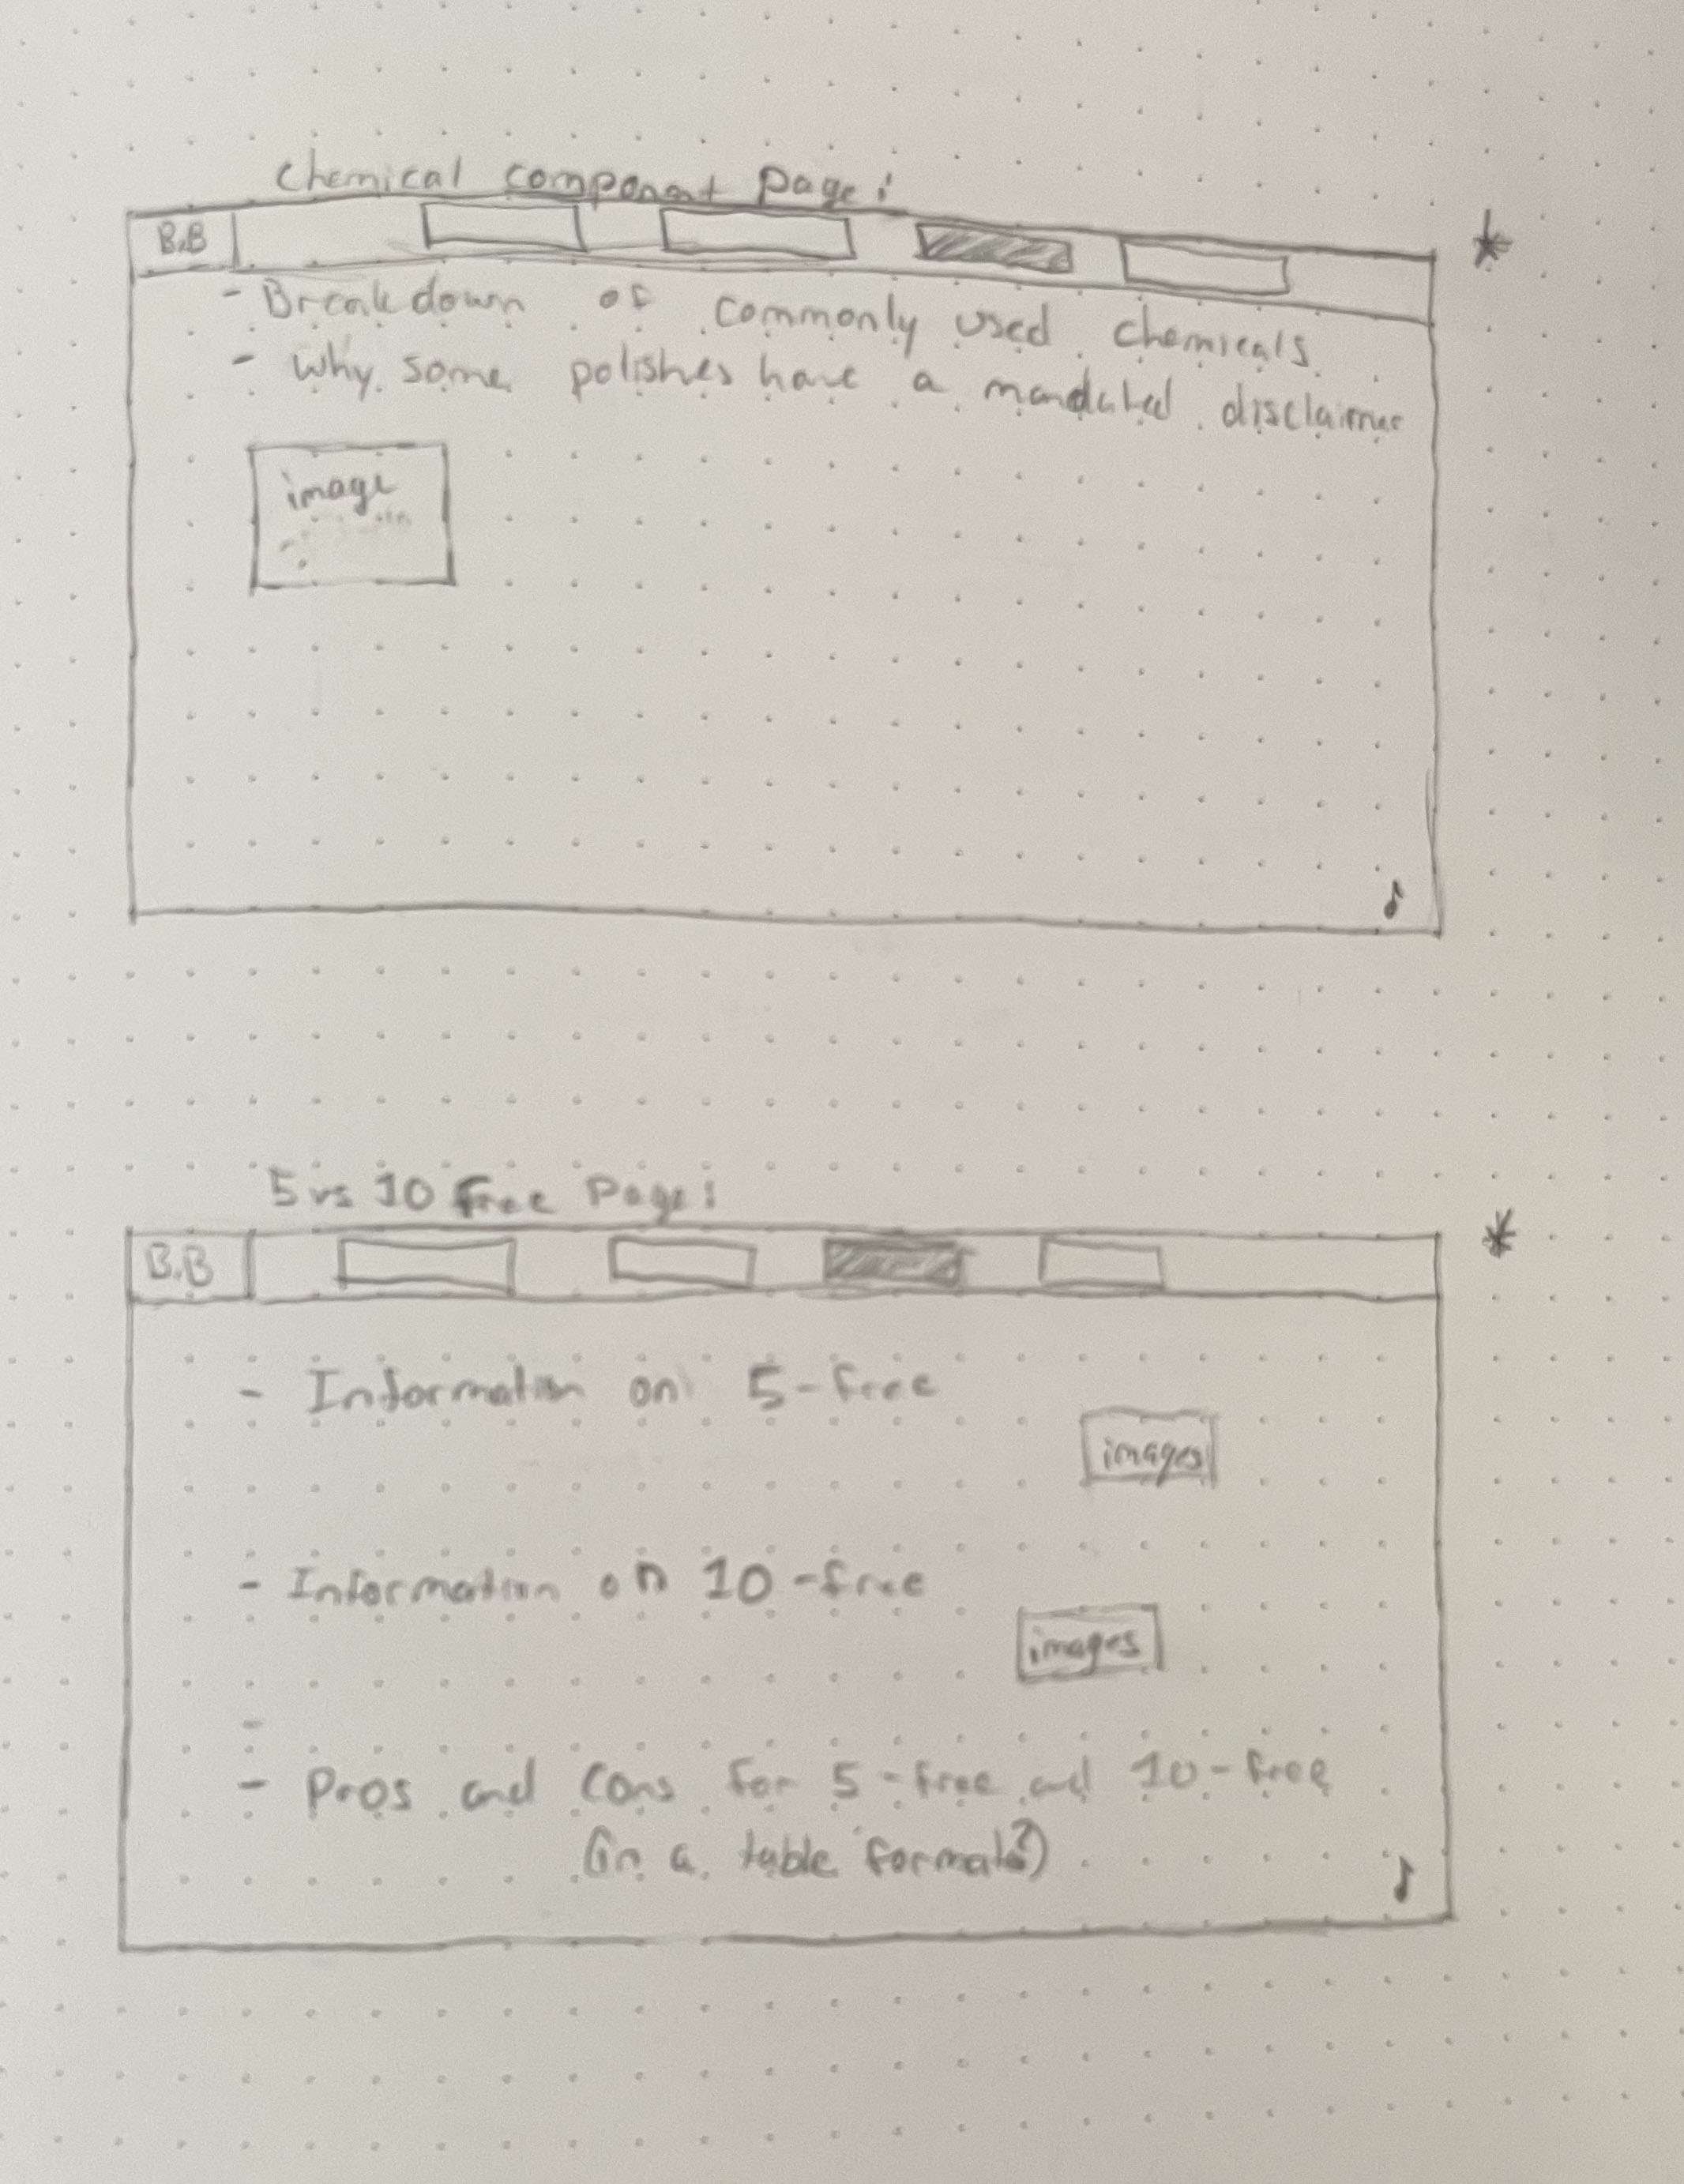 Chemical component Page:
B.B
- Breakdown of commonly used chemicals
- Why some polishes have a mandated disclaimer
image
5 vs 10 Free Page:
B.B
- Information on 5-free
images
- Information on 10-free
images
-
- Pros and Cons for 5-free and 10-free
(in a table format?)